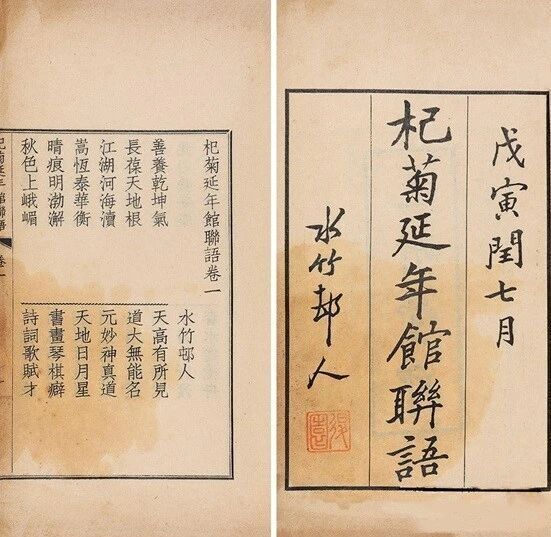 戊寅閏七月
杞菊延年館聯語
水竹邨人
杞菊延年館聯語卷一
水竹邨人
善養乾坤氣 天高有所見
長葆天地根 道大無能名
江湖河海瀆 元妙神真道
嵩恆泰華衡 天地日月星
晴痕明渤澥 書畫琴棋癖
秋色上峨嵋 詩詞歌賦才
杞菊延年館聯語 卷一